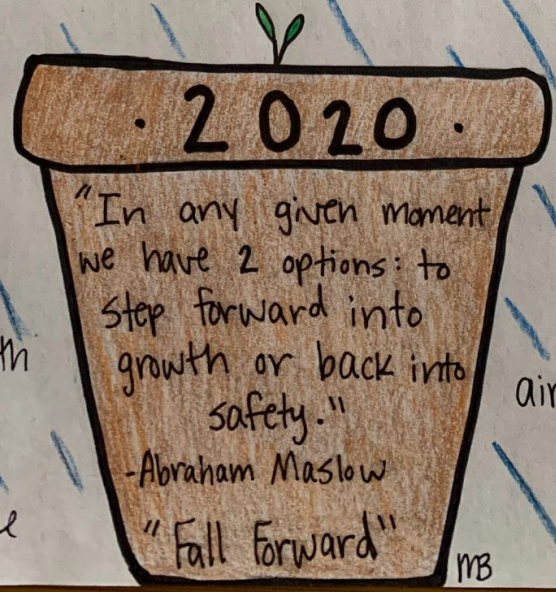 · 2020 ·
"In any given moment
we have 2 options: to
step forward into
growth or back into
safety."
-Abraham Maslow
"Fall Forward"
MB